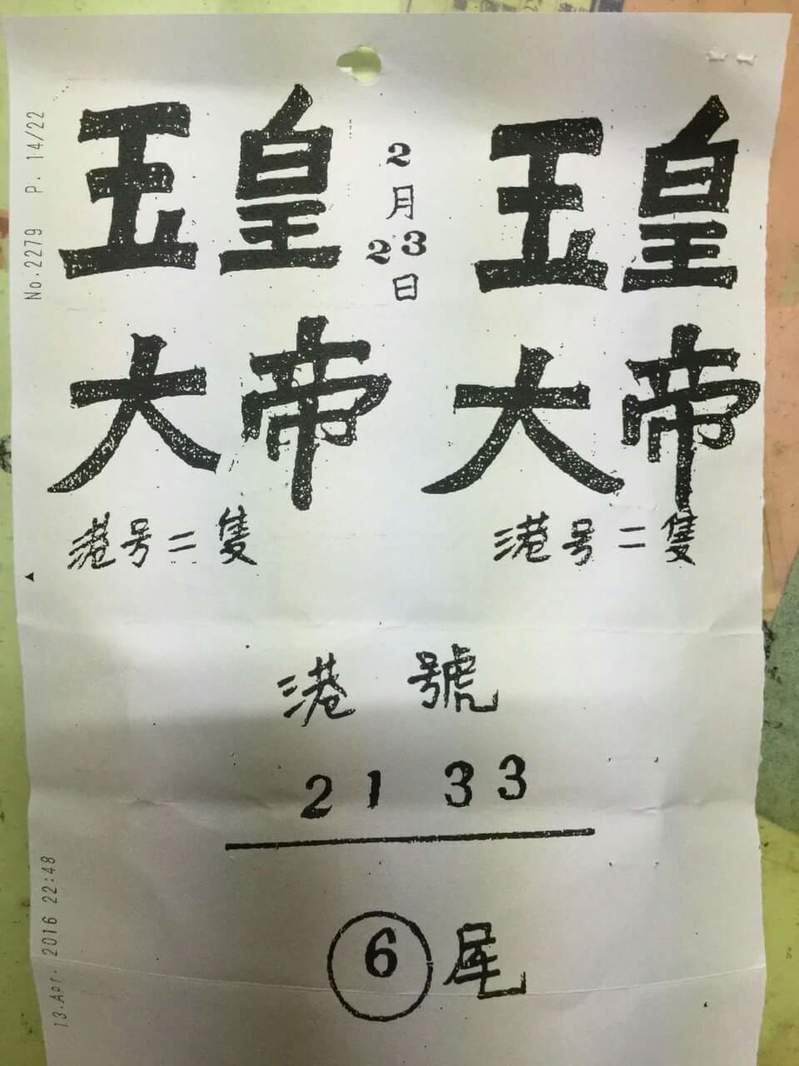 No.2279 P. 14/22
玉皇
大帝
港号二隻
2月23日
玉皇
大帝
港号二隻
港號
21 33
6尾
13.Apr. 2016 22:48